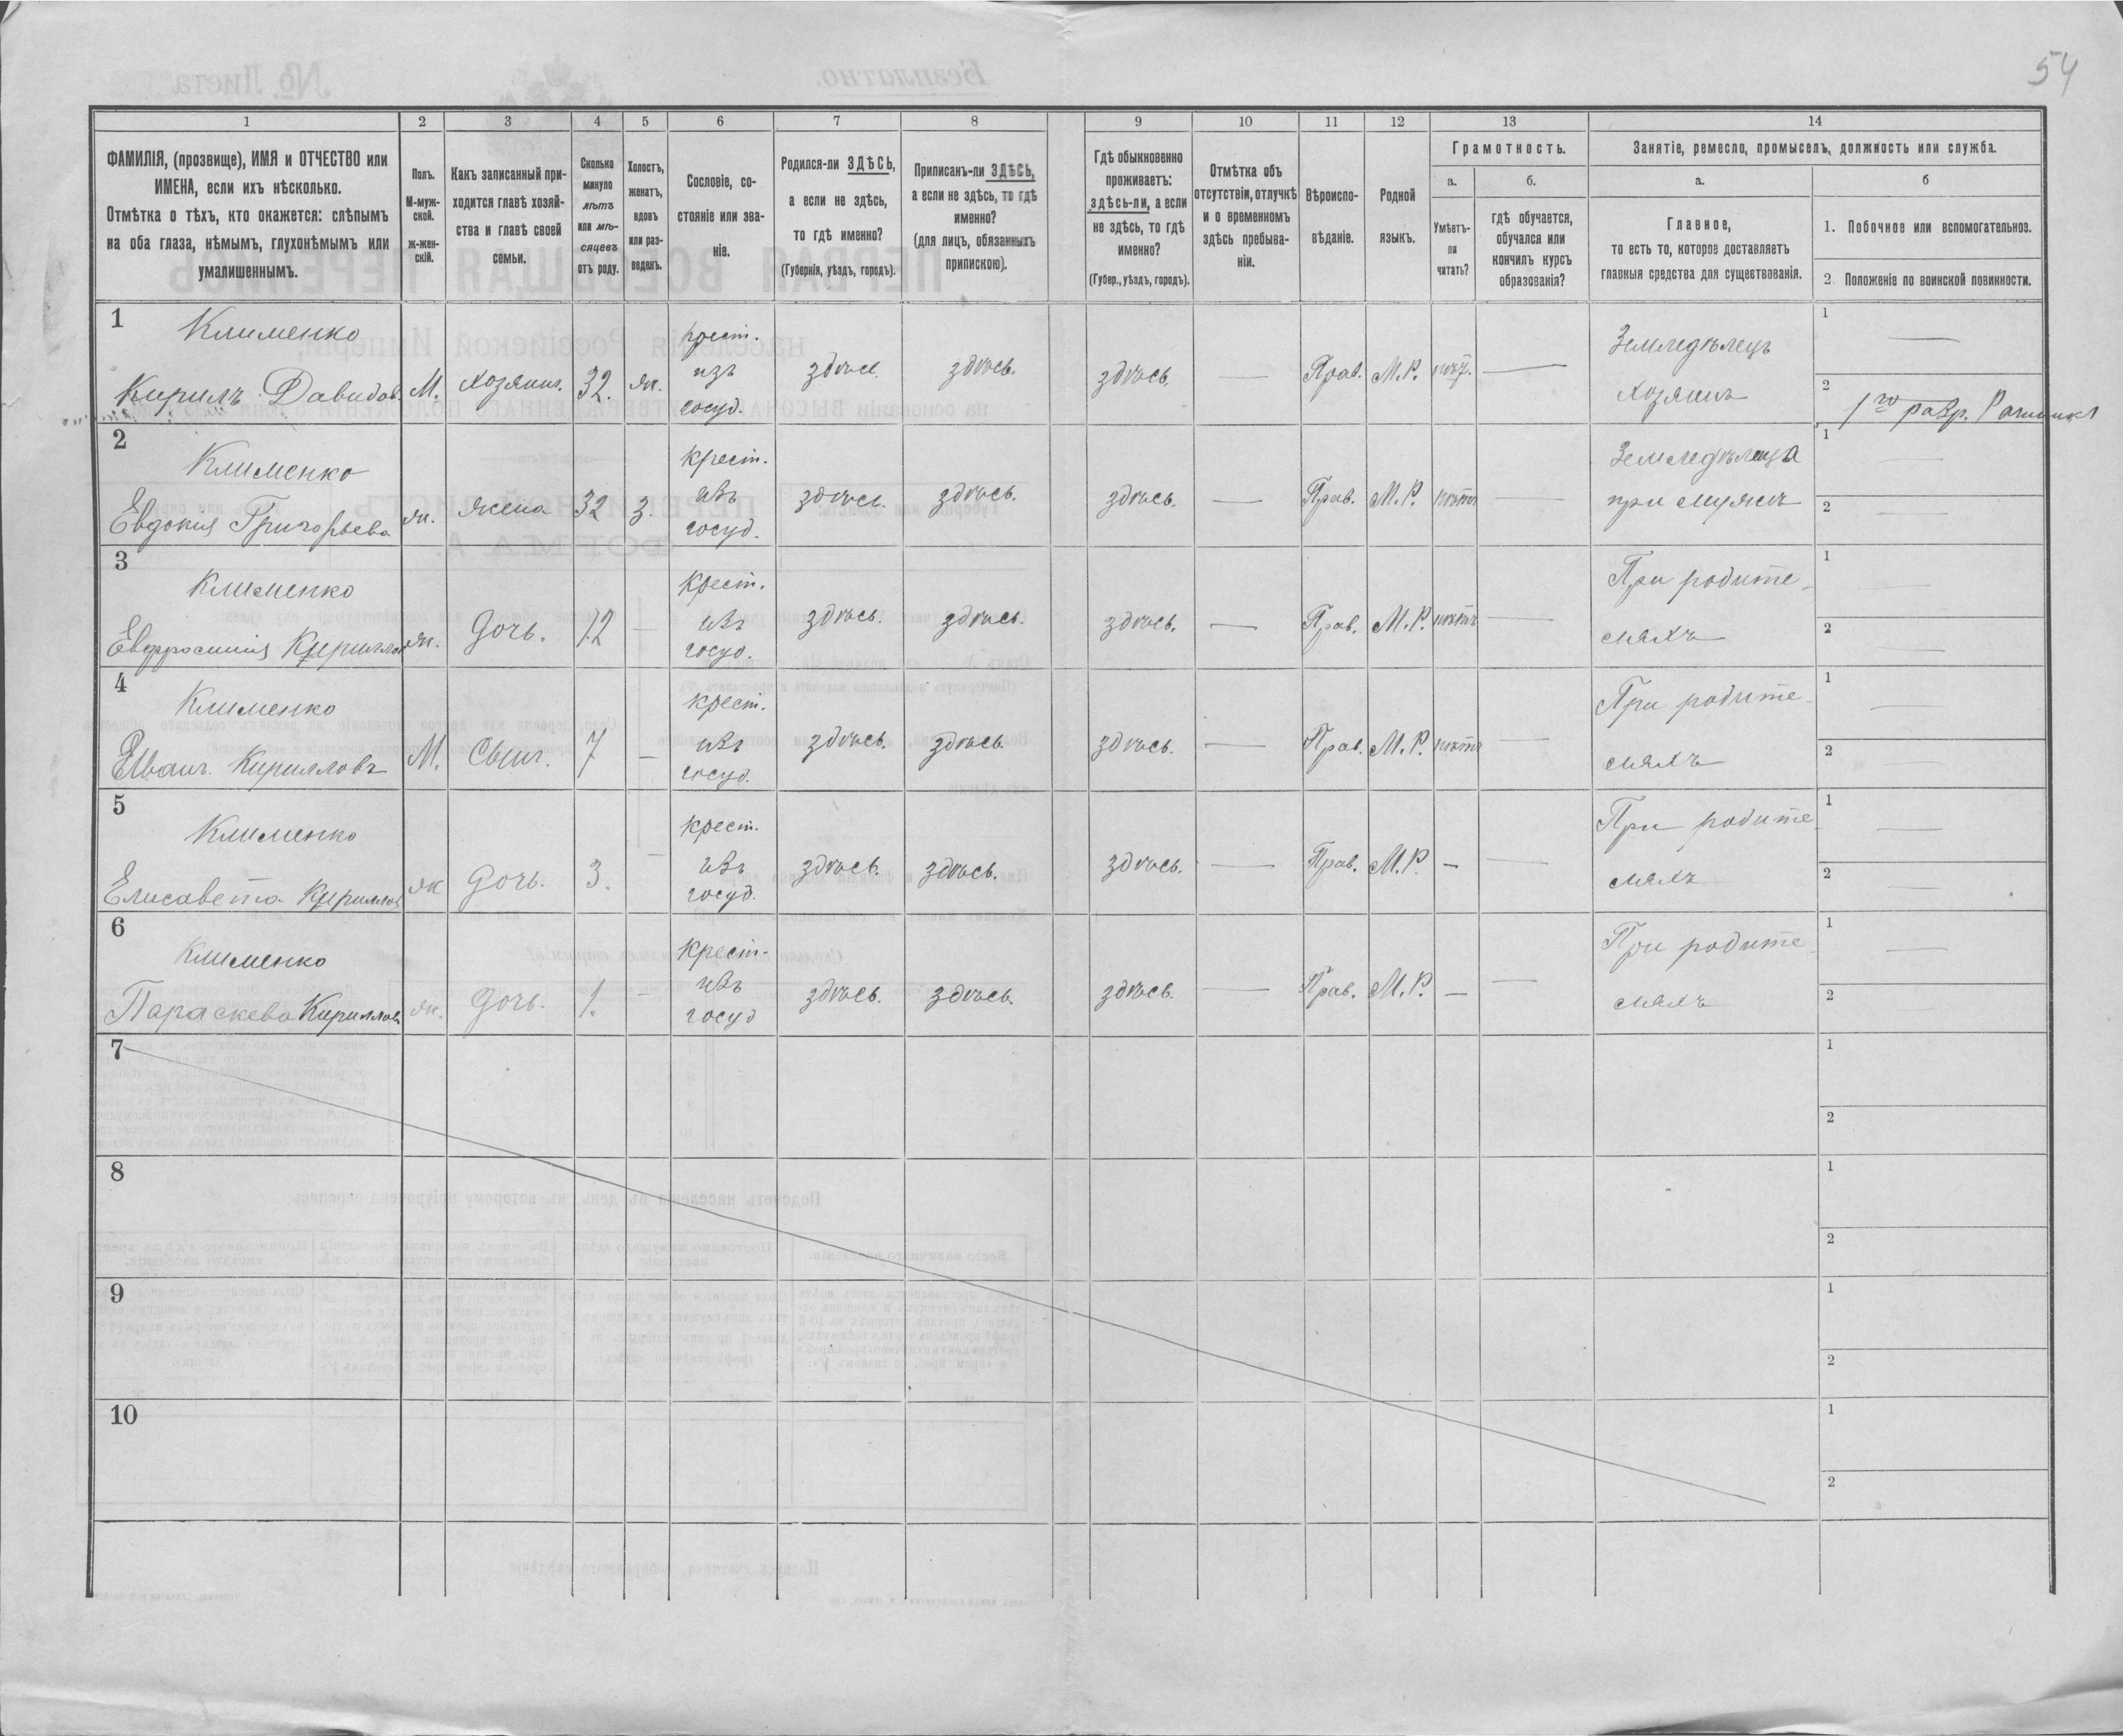 54
1 2 3 4 5 6 7 8 9 10 11 12 13 14
ФАМИЛІЯ, (прозвище), ИМЯ и ОТЧЕСТВО или
ИМЕНА, если ихъ нѣсколько.
Отмѣтка о тѣхъ, кто окажется: слѣпымъ
на оба глаза, нѣмымъ, глухонѣмымъ или
умалишеннымъ.
Полъ.
М-муж-
ской.
ж-жен-
скій.
Какъ записанный при-
ходится главѣ хозяй-
ства и главѣ своей
семьи.
Сколько
минуло
лѣтъ
или мѣ-
сяцевъ
отъ роду.
Холостъ,
женатъ,
вдовъ
или раз-
веденъ.
Сословіе, со-
стояніе или зва-
ніе.
Родился-ли ЗДѢСЬ,
а если не здѣсь,
то гдѣ именно?
(Губернія, уѣздъ, городъ).
Приписанъ-ли ЗДѢСЬ,
а если не здѣсь, то гдѣ
именно?
(для лицъ, обязанныхъ
припискою).
Гдѣ обыкновенно
проживаетъ:
здѣсь-ли, а если
не здѣсь, то гдѣ
именно?
(Губер., уѣздъ, городъ).
Отмѣтка объ
отсутствіи, отлучкѣ
и о временномъ
здѣсь пребыва-
ніи.
Вѣроиспо-
вѣданіе.
Родной
языкъ.
Грамотность.
а.
Умѣетъ-
ли
читать?
б.
гдѣ обучается,
обучался или
кончилъ курсъ
образованія?
Занятіе, ремесло, промыселъ, должность или служба.
а.
Главное,
то есть то, которое доставляетъ
главныя средства для существованія.
б
1. Побочное или вспомогательное.
2. Положеніе по воинской повинности.
1
Клименко
Кирилъ Давидов.
М. хозяинъ. 32. ж.
крест.
изъ
госуд.
здѣсь здѣсь. здѣсь. — Прав. М.Р. нѣт. —
Земледѣлецъ
хозяинъ
1 —
2 1го разр. Ратникъ
2
Клименко
Евдокия Григорьева
ж. жена 32 з.
крест.
изъ
госуд.
здѣсь. здѣсь. здѣсь. — Прав. М.Р. нѣтъ —
Земледѣлица
при мужѣ
1 —
2 —
3
Клименко
Евфросинія Кирилло
ж. дочь. 12 —
крест.
изъ
госуд.
здѣсь. здѣсь. здѣсь. — Прав. М.Р. нѣтъ —
При родите-
ляхъ
1 —
2 —
4
Клименко
Иванъ Кирилловъ
М. сынъ. 7 —
крест.
изъ
госуд.
здѣсь. здѣсь. здѣсь. — Прав. М.Р. нѣтъ —
При родите-
ляхъ
1 —
2 —
5
Клименко
Елисавета Кириллов
ж дочь. 3. —
крест.
изъ
госуд.
здѣсь. здѣсь. здѣсь. — Прав. М.Р. — —
При родите-
ляхъ
1 —
2 —
6
Клименко
Параскева Кириллов
ж. дочь. 1. —
крест.
изъ
госуд
здѣсь. здѣсь. здѣсь. — Прав. М.Р. — —
При родите-
ляхъ
1 —
2 —
7
1
2
8
1
2
9
1
2
10
1
2